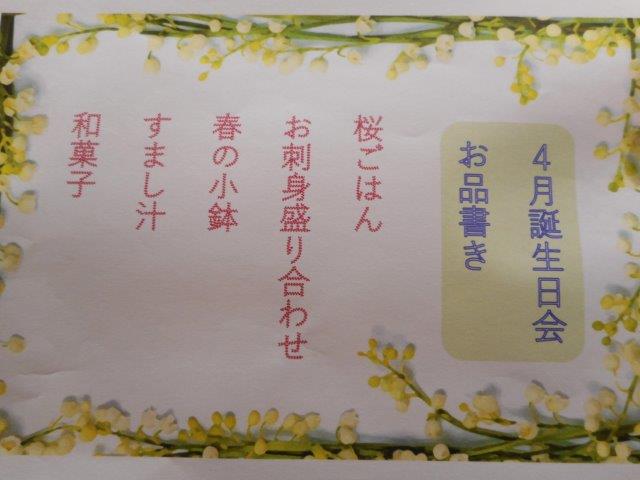 4月誕生日会
お品書き
桜ごはん
お刺身盛り合わせ
春の小鉢
すまし汁
和菓子